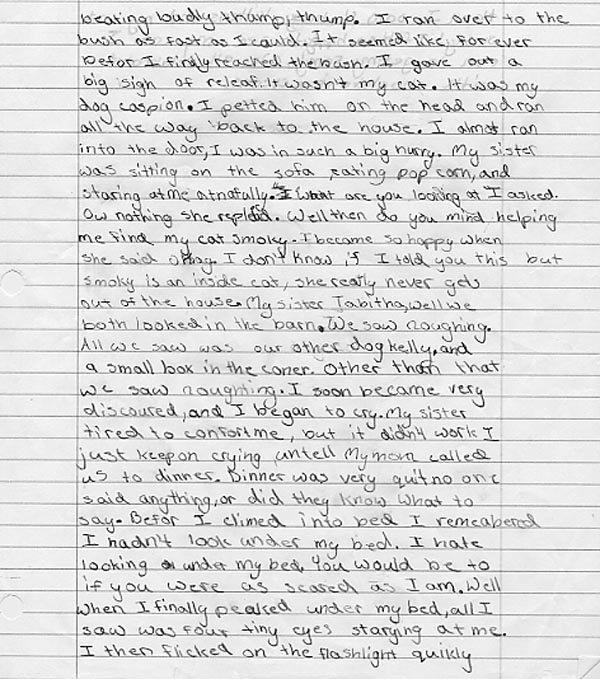 beating loudly thump, thump. I ran over to the
bush as fast as I could. It seemed like for ever
befor I findly reached the bush. I gave out a
big sigh of releaf. It wasn't my cat. It was my
dog caspion. I petted him on the head and ran
all the way back to the house. I almost ran
into the door, I was in such a big hurry. My sister
was sitting on the sofa eating pop corn, and
staring at me atnatully. I want are you looking at I asked.
Ow nothing she replold. Well then do you mind helping
me find my cat smoky. I became so happy when
she said okay. I don't know if I told you this but
smoky is an inside cat, she really never gets
out of the house. My sister Tabitha, well we
both looked in the barn. We saw noughing.
All we saw was our other dog kelly, and
a small box in the coner. Other than that
we saw noughting. I soon became very
discoured, and I began to cry. My sister
tired to confort me, but it didn't work I
just keep on crying untell My mom called
us to dinner. Dinner was very quit no one
said anything, or did they know what to
say. Befor I climed into bed I remeabered
I hadn't look under my bed. I hate
looking under my bed. You would be to
if you were as scared as I am. Well
when I finally peaked under my bed, all I
saw was four tiny eyes starying at me.
I then flicked on the flashlight quikly